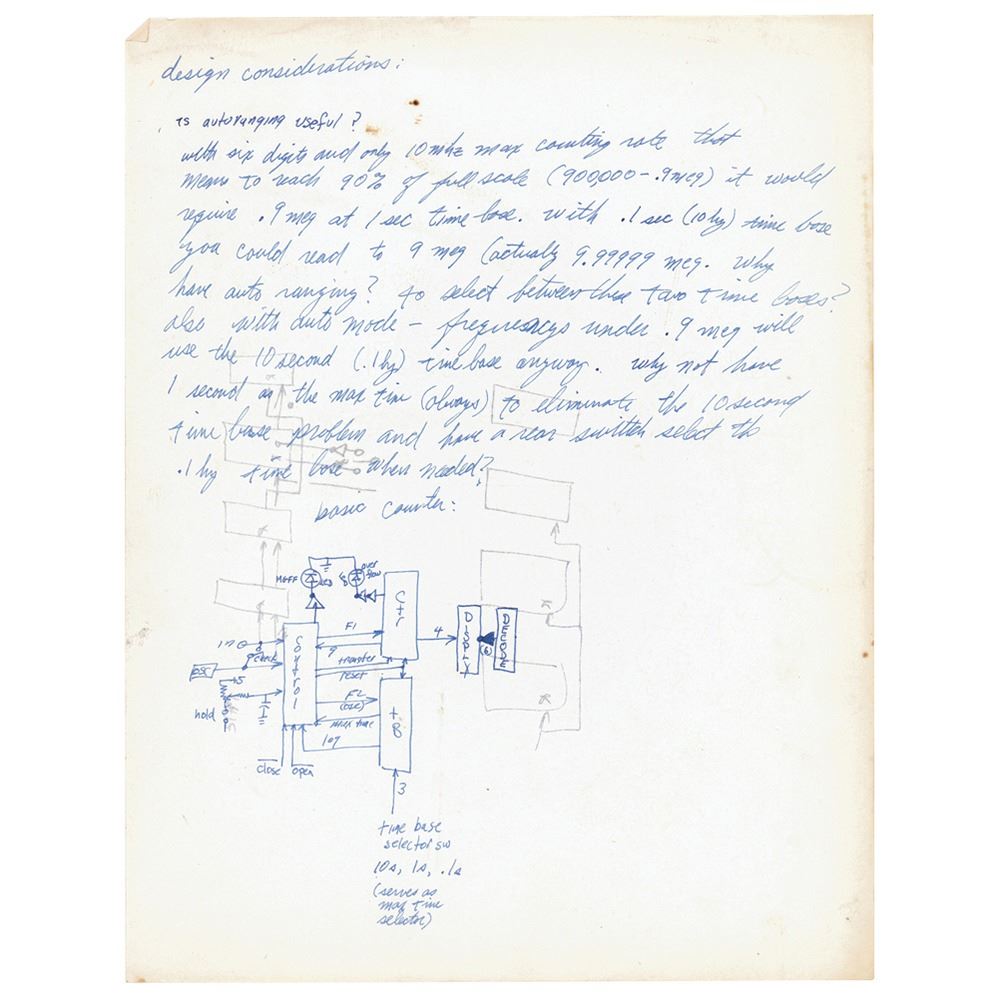 design considerations:
is autoranging useful?
with six digits and only 10mhz max counting rate that
means to reach 90% of full scale (900,000 - .9meg) it would
require .9 meg at 1 sec time base. with .1 sec (10hz) time base
you could read to 9 meg (actually 9.99999 meg. Why
have auto ranging? to select between these two time bases?
also with auto mode - frequencys under .9 meg will
use the 10 second (.1hz) time base anyway. why not have
1 second as the max time (always) to eliminate the 10 second
time base problem and have a rear switch select the
.1 hz time base when needed?
basic counter:
over
flow
LED
Ctr
in
check
F1
4
DISPLAY
control
transfer
reset
osc
+5
F2
(osc)
hold
max time
tB
107
close
open
3
time base
selector sw
10s, 1s, .1s
(serves as
max time
selector)